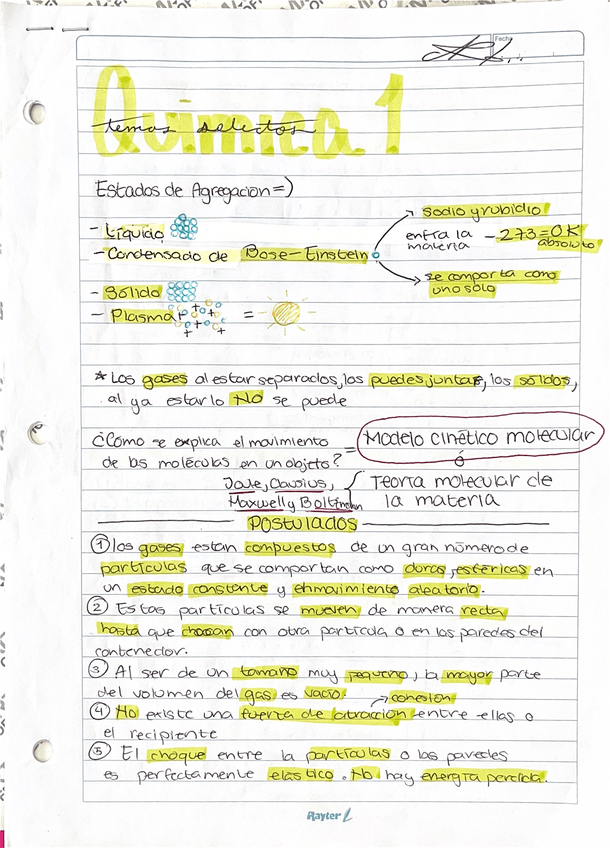 Fecha
Química 1
temas selectos
Estados de Agregacion =)
- Líquido
- Condensado de Bose-Einstein
sodio y rubidio
enfría la materia
-273=0K
absoluto
se comporta como
uno solo
- Sólido
- Plasma
=
* Los gases al estar separados, los puedes juntar, los sólidos,
al ya estarlo NO se puede
¿Cómo se explica el movimiento
de las moléculas en un objeto?
= Modelo cinético molecular
ó
Joule, Clausius,
Maxwell y Boltzmann
Teoria molecular de
la materia
POSTULADOS
① los gases estan compuestos de un gran número de
partículas que se comportan como duras, esféricas en
un estado constante y en movimiento aleatorio.
② Estas partículas se mueven de manera recta
hasta que chocan con otra partícula o en las paredes del
contenedor.
③ Al ser de un tamaño muy pequeño, la mayor parte
del volumen del gas es vacio.
→ cohesión
④ No existe una fuerza de atracción entre ellas o
el recipiente
⑤ El choque entre la partículas o las paredes
es perfectamente elástico. No hay energía perdida.
Rayter